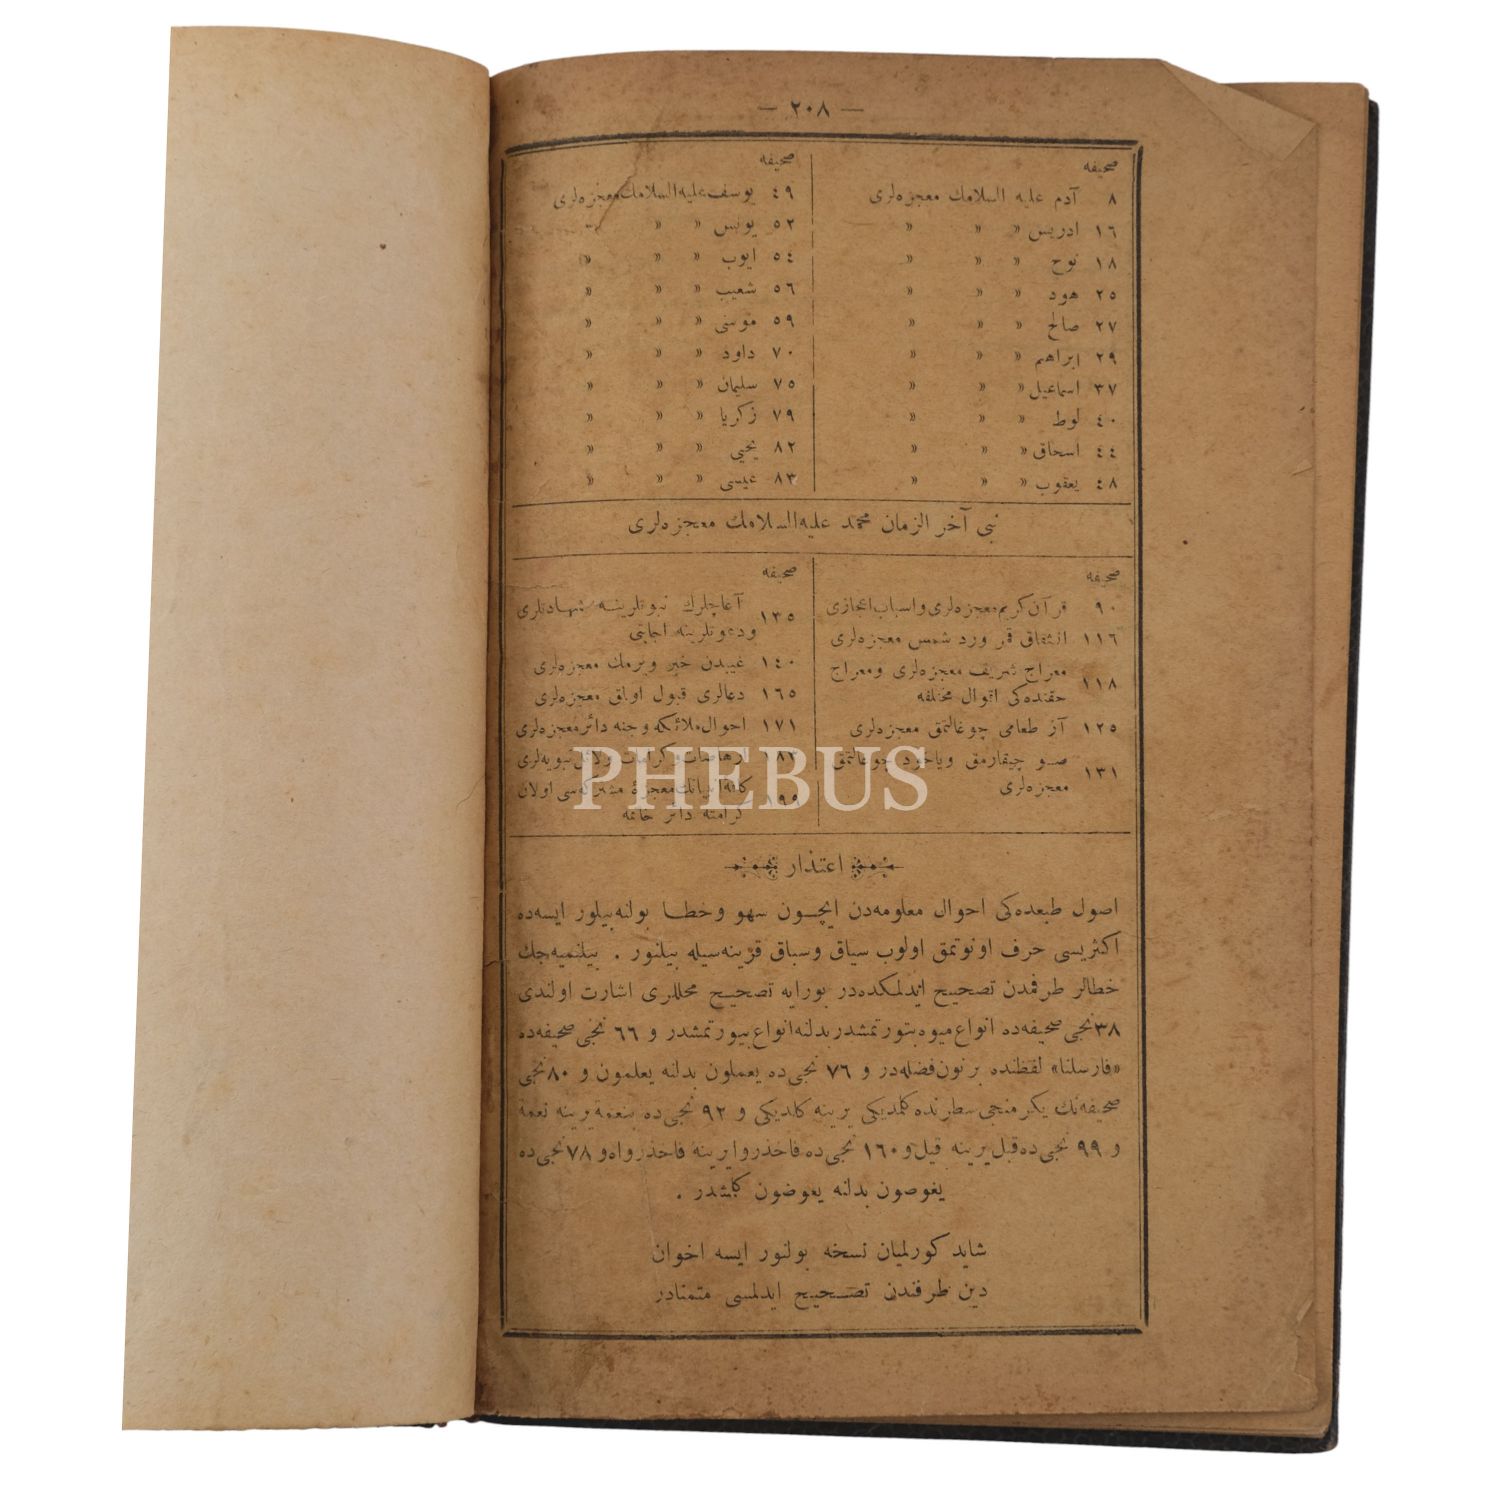 — ٢٠٨ —
صحیفه
٨ آدم علیه السلامك معجزه‌لری
١٦ ادریس » » »
١٨ نوح » » »
٢٥ هود » » »
٢٧ صالح » » »
٢٩ ابراهیم » » »
٣٧ اسماعیل » » »
٤٠ لوط » » »
٤٤ اسحاق » » »
٤٨ یعقوب » » »
صحیفه
٤٩ یوسف علیه السلامك معجزه‌لری
٥٢ یونس » » »
٥٤ ایوب » » »
٥٦ شعیب » » »
٥٩ موسی » » »
٧٠ داود » » »
٧٥ سلیمان » » »
٧٩ زكریا » » »
٨٢ یحیی » » »
٨٣ عیسی » » »
نبی آخر الزمان محمد علیه السلامك معجزه‌لری
صحیفه
٩٠ قرآن كریم معجزه‌لری و اسباب اعجازی
١١٦ انشقاق قمر ورد شمس معجزه‌لری
١١٨ معراج شریف معجزه‌لری و معراج
حقنده‌كی اقوال مختلفه
١٢٥ آز طعامی چوغالتمق معجزه‌لری
١٣١ صو چیقارمق ویاخود چوغالتمق
معجزه‌لری
صحیفه
١٣٥ آغاچلرك نبوتلرینه شهادتلری
ودعوتلرینه اجابتی
١٤٠ غیبدن خبر ویرمك معجزه‌لری
١٦٥ دعالری قبول اولمق معجزه‌لری
١٧١ احوال ملائكه و جنه دائر معجزه‌لری
١٨٣ ارهاصات و كرامات و دلائل نبویه‌لری
١٩٩ كافهٔ انبیانك معجزهٔ مشتركه‌سی اولان
كرامته دائر خاتمه
PHEBUS
اعتذار
اصول طبعده‌كی احوال معلومه‌دن ایچون سهو و خطا بولنه‌بیلور ایسه‌ده
اكثریسی حرف اونوتمق اولوب سیاق وسباق قرینه‌سیله بیلنور . بیلنمیه‌جك
خطالر طرفمدن تصحیح ایدلمكده‌در بورایه تصحیح محللری اشارت اولندی
٣٨ نجی صحیفه‌ده انواع میوه بتورتمشدر بدلنه انواع بیورتمشدر و ٦٦ نجی صحیفه‌ده
«فارسلنا» لفظنده بر نون فضله‌در و ٧٦ نجی‌ده یعملون بدلنه یعلمون و ٨٠ نجی
صحیفه‌نك یكرمنجی سطرنده كلمدیكی یرینه كلدیكی و ٩٢ نجی‌ده بنعمة یرینه نعمة
و ٩٩ نجی‌ده قبل یرینه قیل و ١٦٠ نجی‌ده فاحذروا یرینه فاحذرواه و ٧٨ نجی‌ده
یغوصون بدلنه یعوضون كلمشدر .
شاید كورلمیان نسخه بولنور ایسه اخوان
دین طرفندن تصحیح ایدلمسی متمنادر